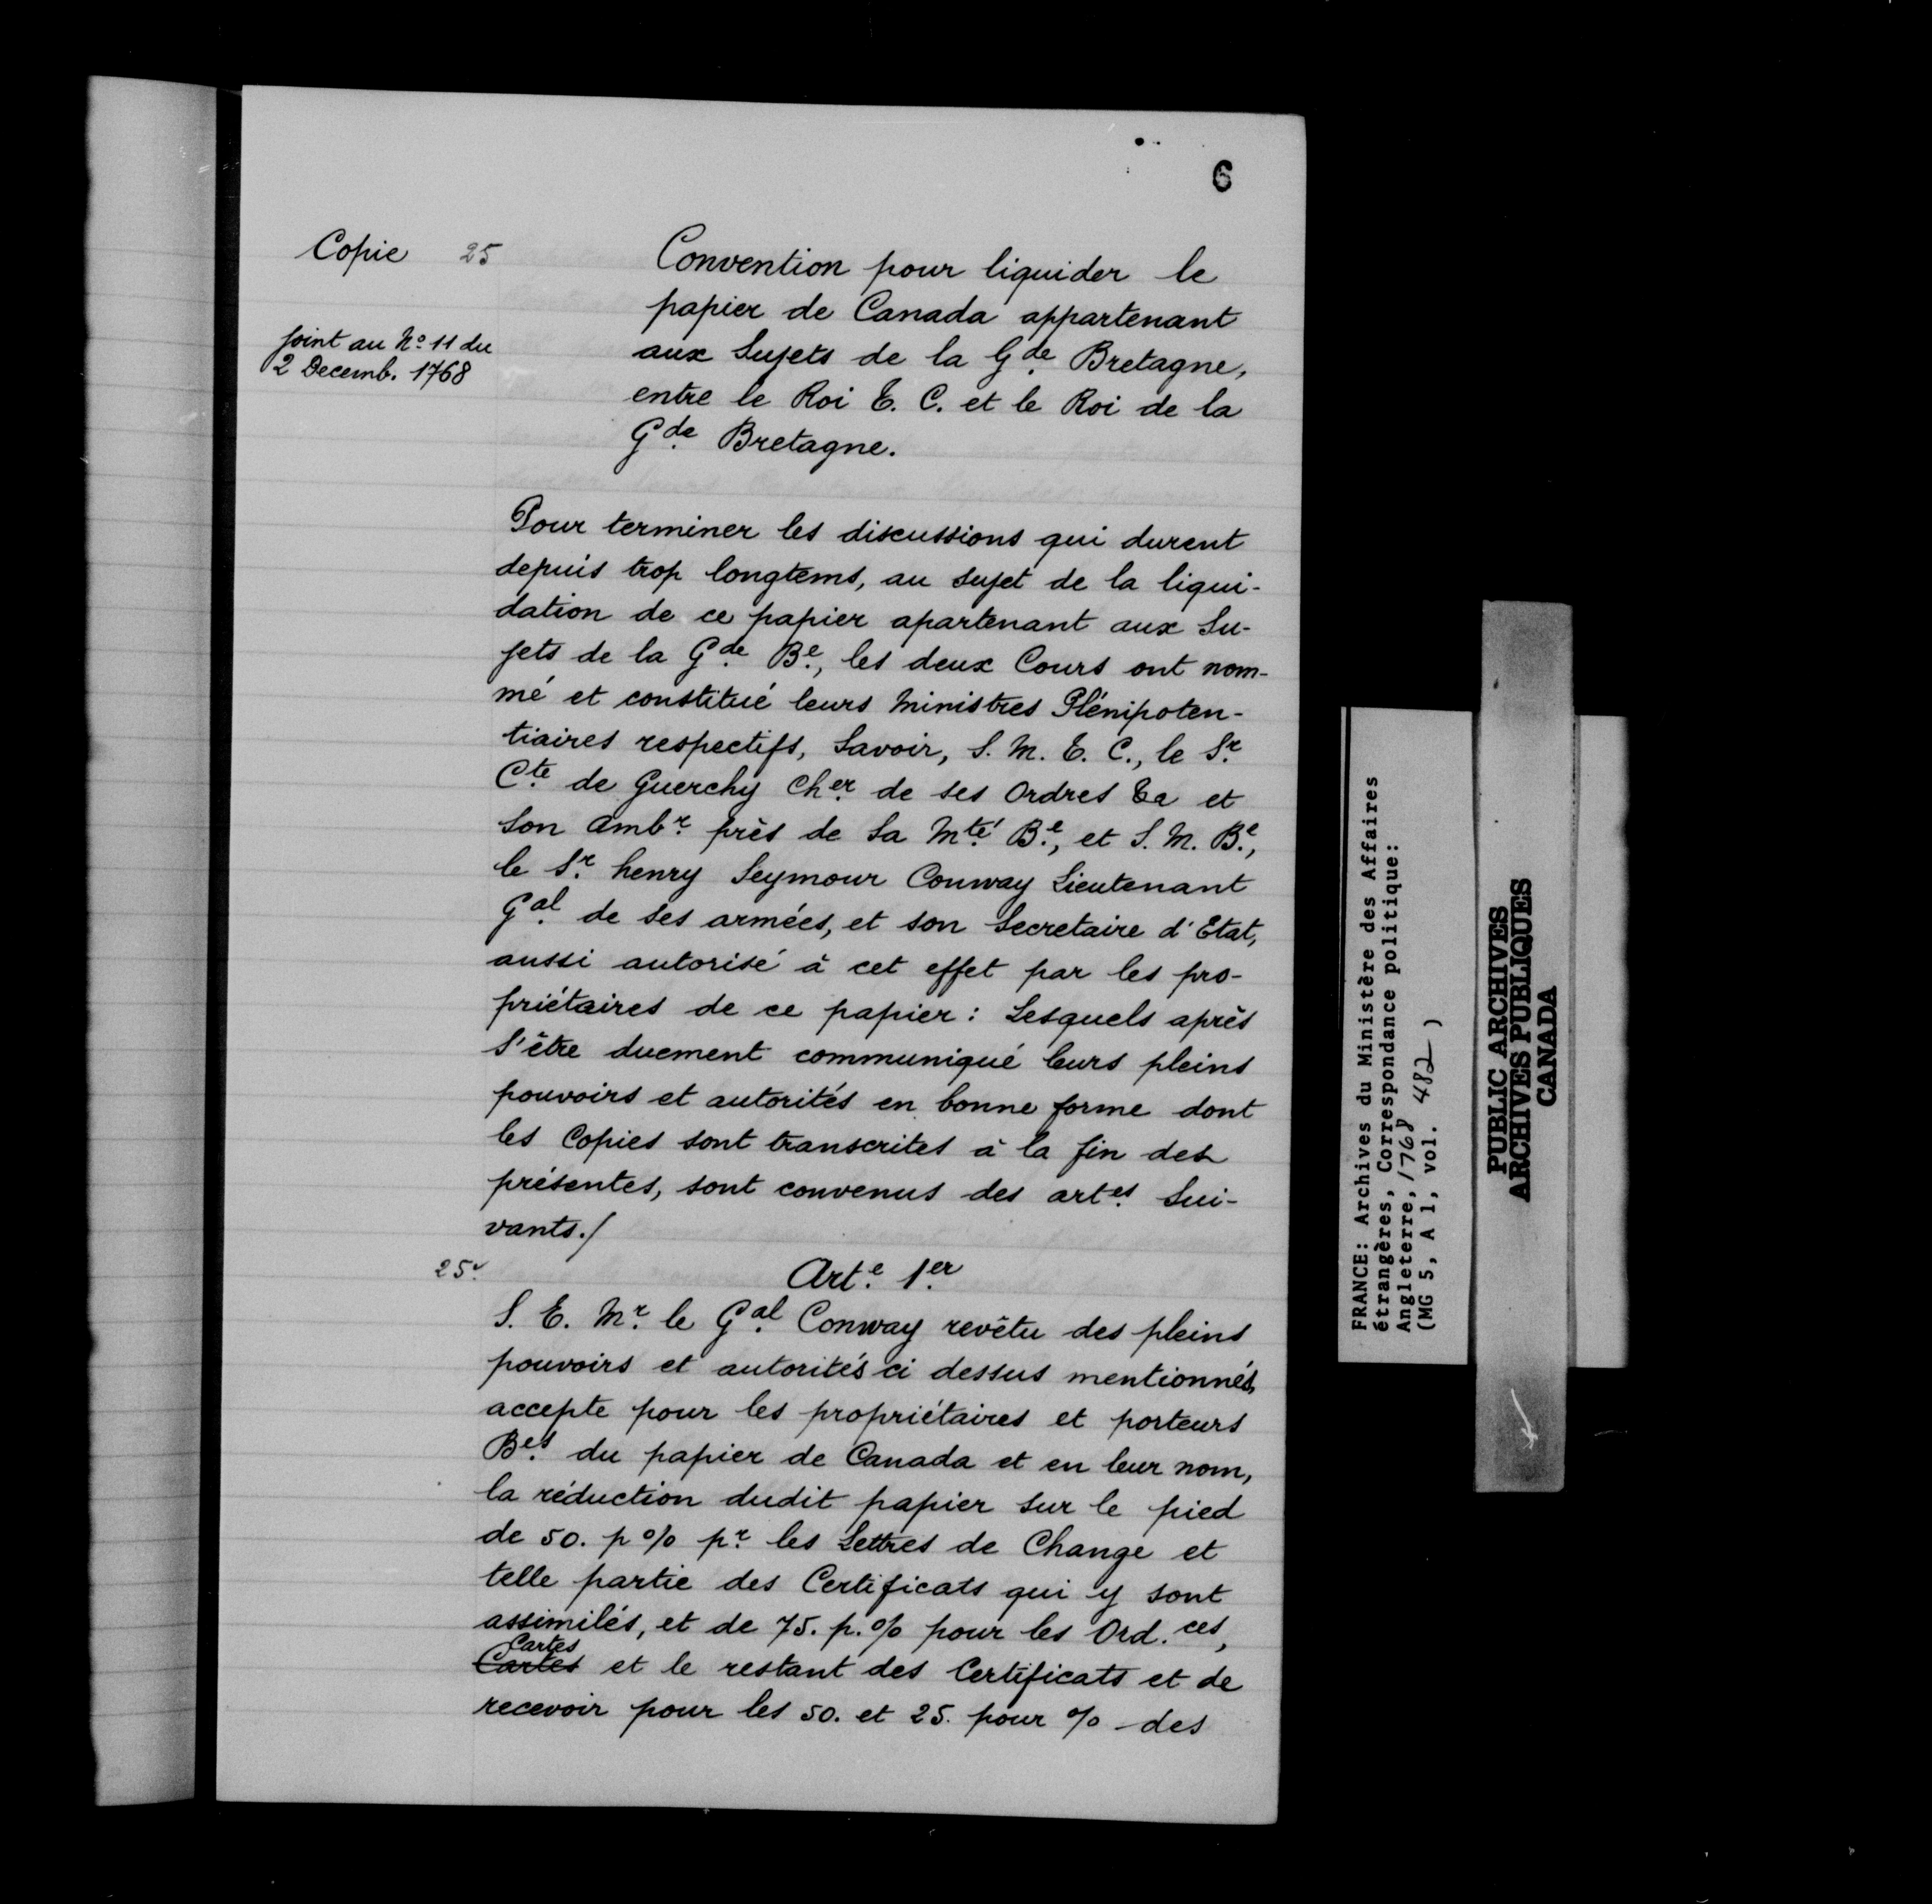 6
Copie 25
Joint au No. 11 du
2 Decemb. 1768
Convention pour liquider le
papier de Canada appartenant
aux Sujets de la Gde. Bretagne,
entre le Roi T. C. et le Roi de la
Gde. Bretagne.
Pour terminer les discussions qui durent
depuis trop longtems, au sujet de la liqui-
dation de ce papier apartenant aux Su-
jets de la Gde. Be., les deux Cours ont nom-
mé et constitué leurs Ministres Plénipoten-
tiaires respectifs, Savoir, S. M. T. C., le Sr.
Cte. de Guerchy Cher. de ses Ordres &a et
son Ambr. près de Sa Mté. Be., et S. M. Be.,
le Sr. henry Seymour Conway Lieutenant
Gal. de ses armées, et son Secretaire d'Etat,
aussi autorisé à cet effet par les pro-
priétaires de ce papier: Lesquels après
s'être duement communiqué leurs pleins
pouvoirs et autorités en bonne forme dont
les Copies sont transcrites à la fin des
présentes, sont convenus des artes. Sui-
vants./
25v.
Arte. 1er.
S. E. Mr. le Gal. Conway revêtu des pleins
pouvoirs et autorités ci dessus mentionnés,
accepte pour les propriétaires et porteurs
Bes. du papier de Canada et en leur nom,
la réduction dudit papier sur le pied
de 50. p % pr. les Lettres de Change et
telle partie des Certificats qui y sont
assimilés, et de 75. p. % pour les Ord.ces,
Cartes
Cartes et le restant des Certificats et de
recevoir pour les 50. et 25. pour % - des
FRANCE: Archives du Ministère des Affaires
étrangères, Correspondance politique:
Angleterre, 1768
(MG 5, A 1, vol. 482 )
PUBLIC ARCHIVES
ARCHIVES PUBLIQUES
CANADA